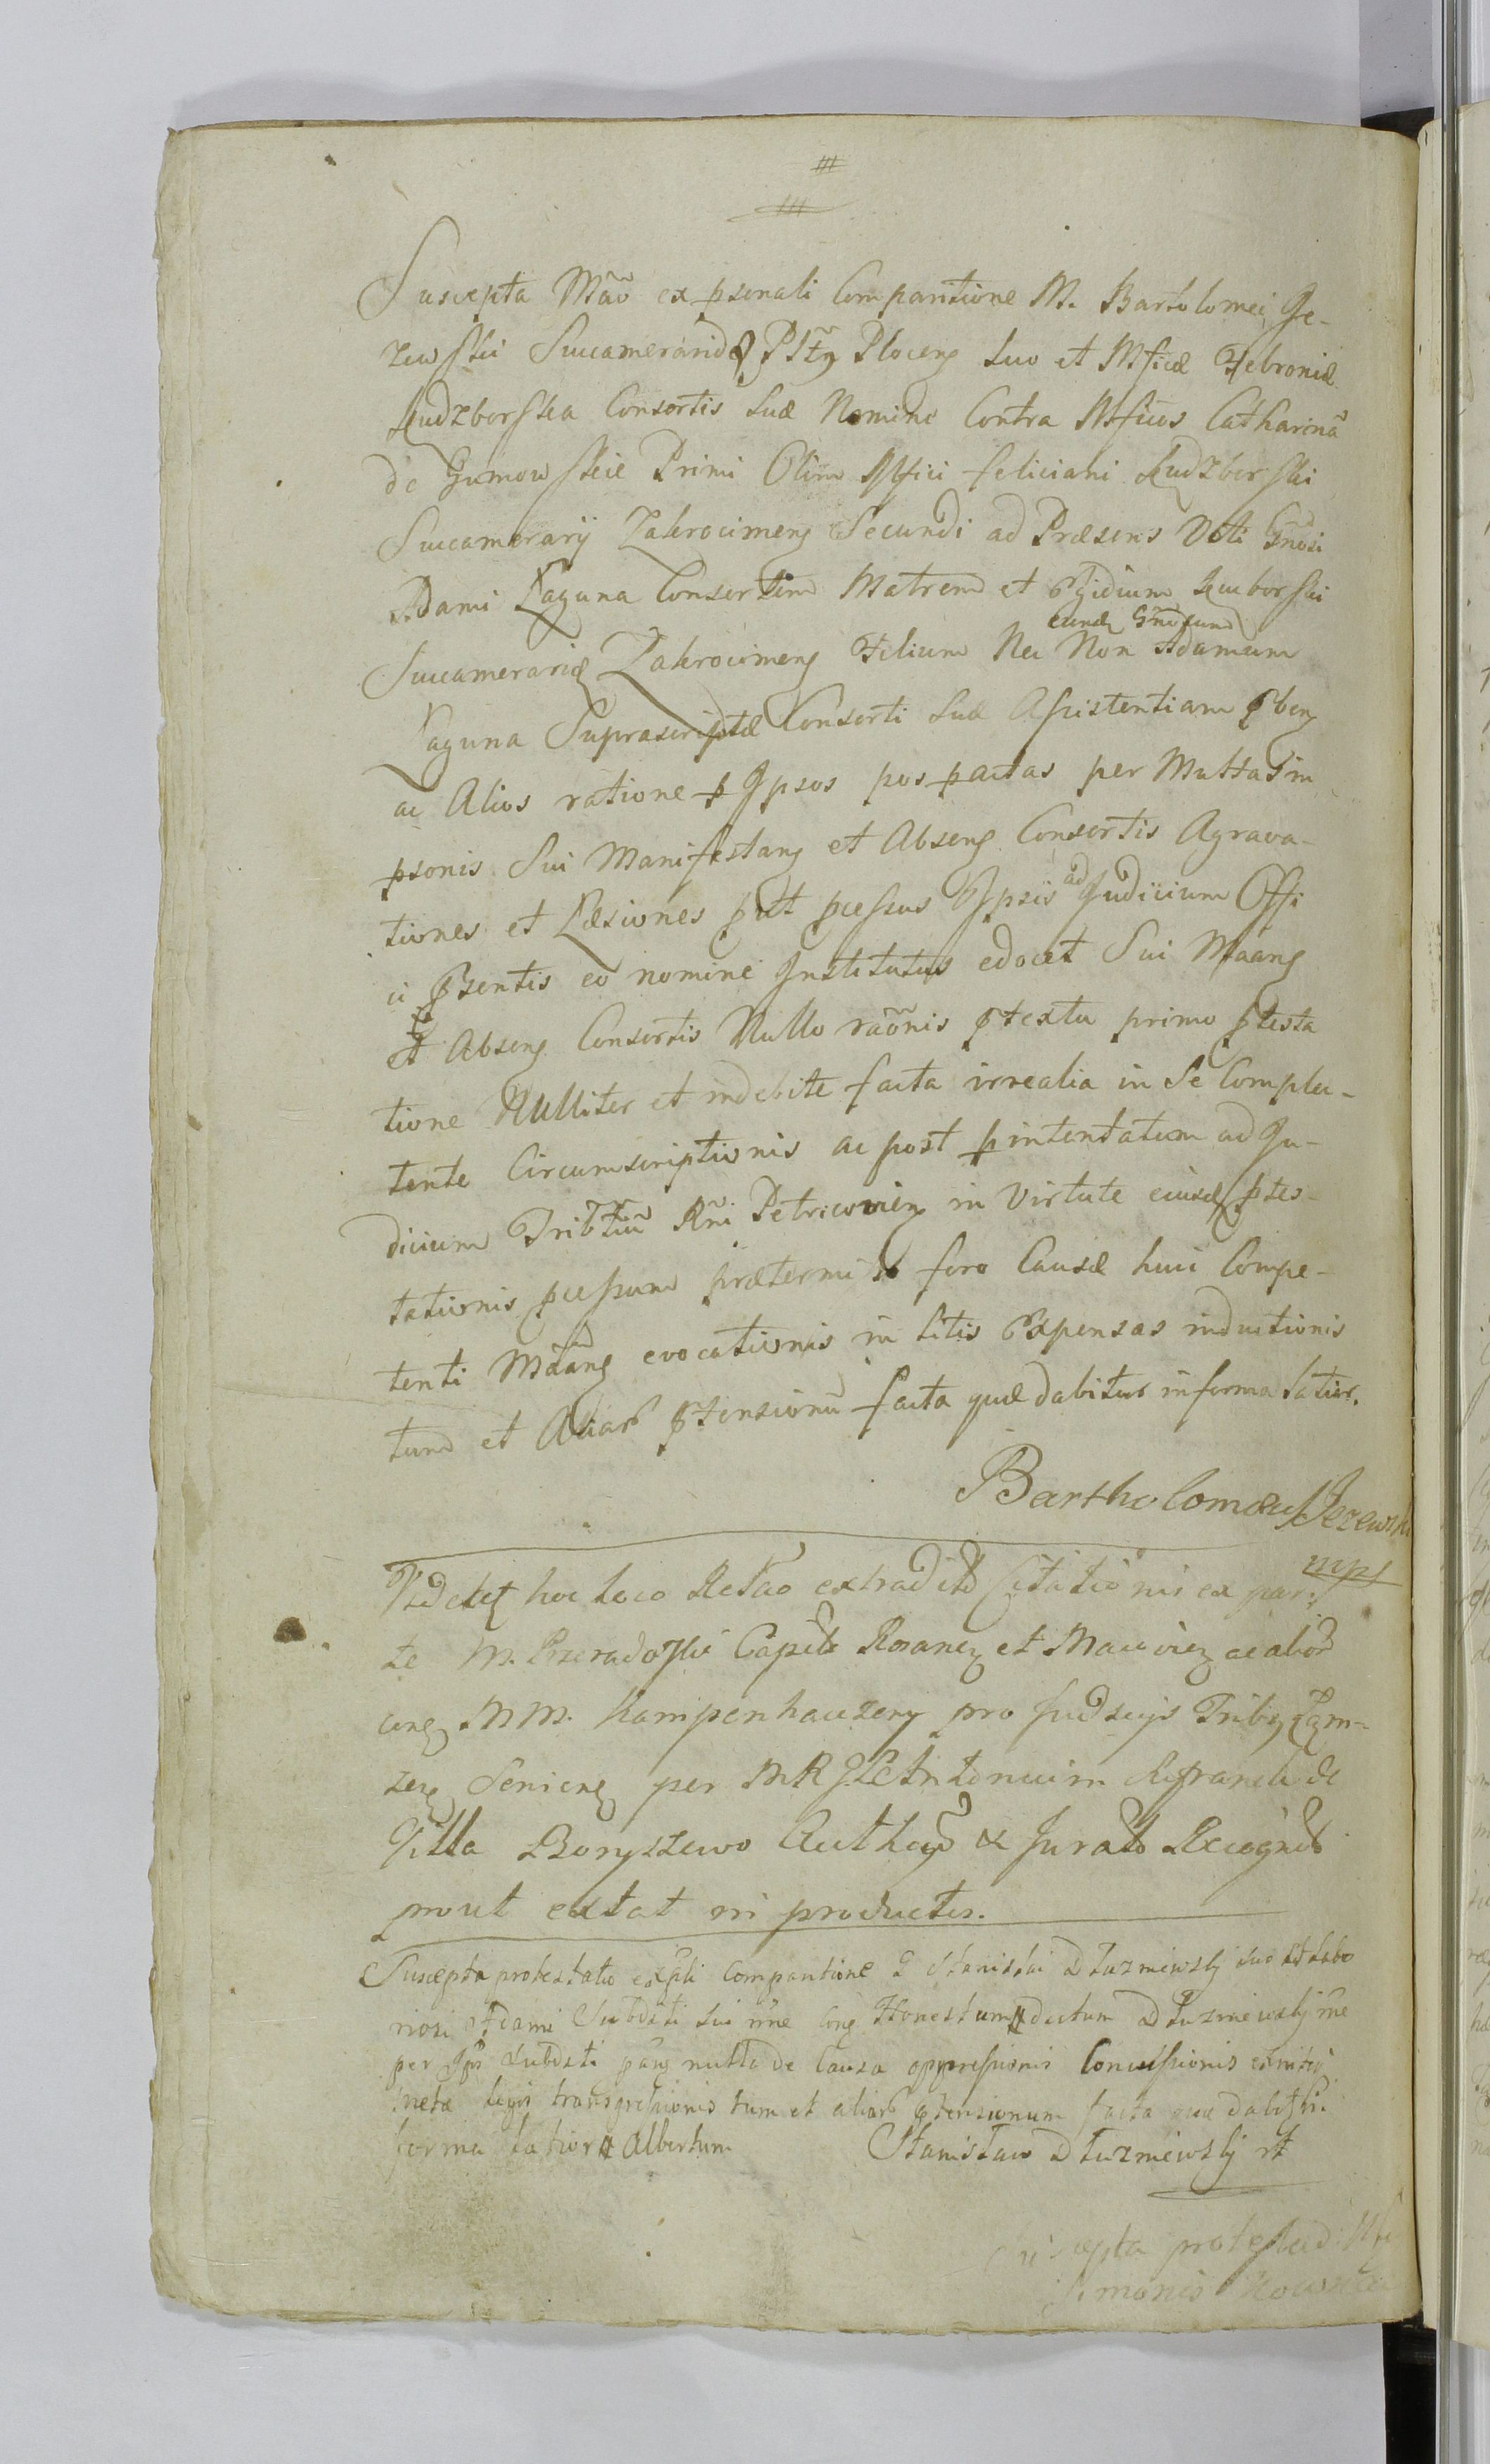 Suscepta Mão ex psonali Comparitione M. Bartolomei Je-
zewski Succameraridæ Płtņ Ploceņ suo et Mficæ Febroniæ
Kudzborska Consortis suæ Nomine Contra Mficos Catharinã
de Gumowskie Primi Olim Mfici Feliciani Kudzborski
Succamerarij Zakrocimeņ Secundi ad Præsens Voti Gnosi
Adami Łaguna Consortem Matrem et Egidium Kuborski
eundē Gnosum
Succameraridæ Zakrocimeņ Filium Nec Non Adamum
Łaguna Suprascriptæ Consorti suæ Assistentiam pbeņ
ac Alios ratione p Ipsos pos partas per Muttas in
psonis Sui Manifestaņ et Abseņ Consortis Agrava-
tiones et Læsiones put pcessus Ipsis ad Judicium Offi
ci psentis eo nomine Institutus edocet Sui Mãaņ
et Abseņ Consortis Nullo raõnis ptextu primo ptesta
tione Nulliter et indebite facta irrealia in se Complec-
tente Circumscriptionis ac post p intentatum ad Ju-
dicium Tribtlũ Rñi Petricovieņ in Virtute eiusd ptes-
tationis pcessum prætermisso foro Causæ huic Compe-
tenti Mãaņ evocationis in litis Expensas inductionis
tum et Aliar ptensionũ facta quæ dabitur in forma latior.
Bartholomæus Jezewski
mp
Vdelet hoc loco Relao extradit Citationis ex par:
te M. Pzeradoski Capit Rozaneņ et Macovieņ ac alior
coneņ MM. Kampenhauzeny pro Judicijs Trib Łom-
zeņ Senieneņ per MRJLt Antonium de
Villa Boryszewo Auth et Jurato Recognit
prout extat in productis.
Suscepta protestatio ex pli Comparitione G Stanislai Dłuzniewski suo et Labo
riosi Adami Subditi sui nñe Coņ Honestum dictum Dłuzniewskj ñe
per Ips Subditi paņ mutta de Causa oppressionis Concussionis
metæ legis transgressionis tum et aliar ptensionum facta quæ dabit in
forma latiori Albertum Stanisław Dłuzniewskj rt
Suscepta protestao Mfi
Simonis